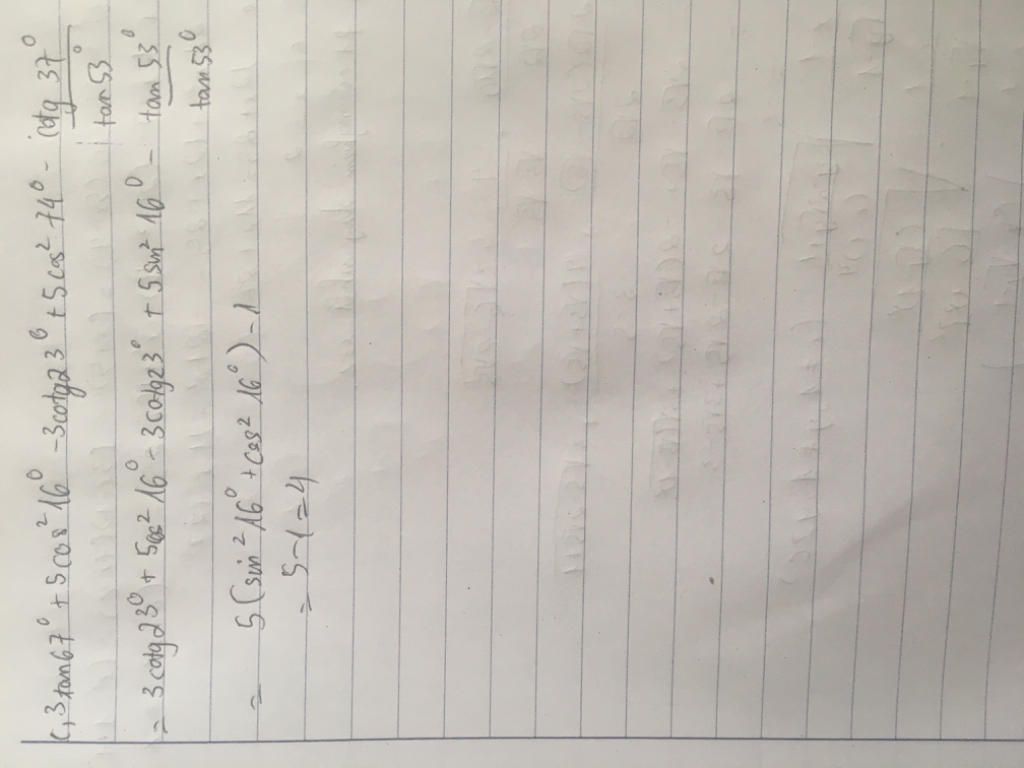 c, 3tan67° + 5cos² 16° - 3cotg23° + 5cos² 74° - cotg 37° / tan53°
= 3cotg23° + 5cos² 16° - 3cotg23° + 5sin² 16° - tan53° / tan53°
= 5(sin² 16° + cos² 16°) - 1
= 5-1 = 4